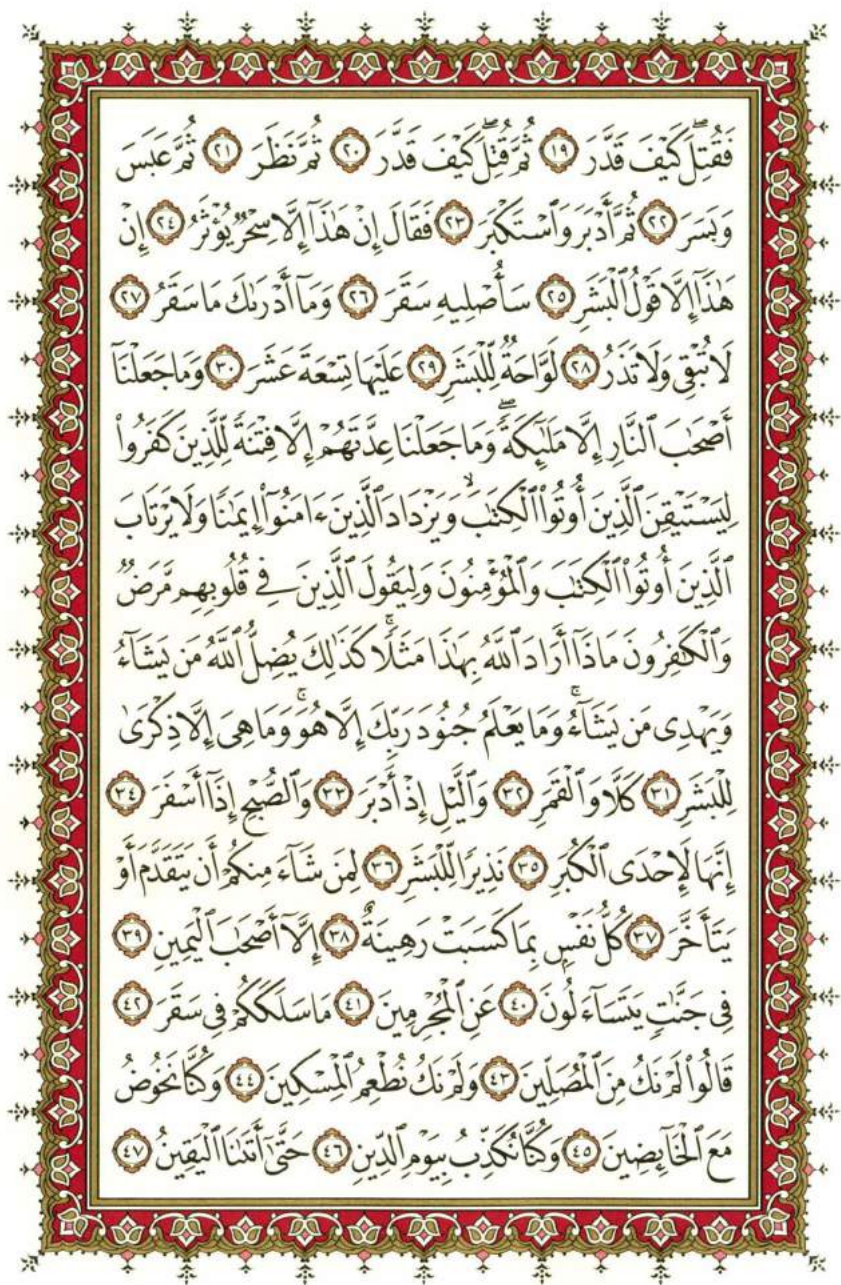 فَقُتِلَ كَيْفَ قَدَّرَ ١٩ ثُمَّ قُتِلَ كَيْفَ قَدَّرَ ٢٠ ثُمَّ نَظَرَ ٢١ ثُمَّ عَبَسَ
وَبَسَرَ ٢٢ ثُمَّ أَدْبَرَ وَٱسْتَكْبَرَ ٢٣ فَقَالَ إِنْ هَٰذَآ إِلَّا سِحْرٌ يُؤْثَرُ ٢٤ إِنْ
هَٰذَآ إِلَّا قَوْلُ ٱلْبَشَرِ ٢٥ سَأُصْلِيهِ سَقَرَ ٢٦ وَمَآ أَدْرَىٰكَ مَا سَقَرُ ٢٧
لَا تُبْقِى وَلَا تَذَرُ ٢٨ لَوَّاحَةٌ لِّلْبَشَرِ ٢٩ عَلَيْهَا تِسْعَةَ عَشَرَ ٣٠ وَمَا جَعَلْنَآ
أَصْحَٰبَ ٱلنَّارِ إِلَّا مَلَٰٓئِكَةً ۖ وَمَا جَعَلْنَا عِدَّتَهُمْ إِلَّا فِتْنَةً لِّلَّذِينَ كَفَرُوا۟
لِيَسْتَيْقِنَ ٱلَّذِينَ أُوتُوا۟ ٱلْكِتَٰبَ وَيَزْدَادَ ٱلَّذِينَ ءَامَنُوٓا۟ إِيمَٰنًا ۙ وَلَا يَرْتَابَ
ٱلَّذِينَ أُوتُوا۟ ٱلْكِتَٰبَ وَٱلْمُؤْمِنُونَ ۙ وَلِيَقُولَ ٱلَّذِينَ فِى قُلُوبِهِم مَّرَضٌ
وَٱلْكَٰفِرُونَ مَاذَآ أَرَادَ ٱللَّهُ بِهَٰذَا مَثَلًا ۚ كَذَٰلِكَ يُضِلُّ ٱللَّهُ مَن يَشَآءُ
وَيَهْدِى مَن يَشَآءُ ۚ وَمَا يَعْلَمُ جُنُودَ رَبِّكَ إِلَّا هُوَ ۚ وَمَا هِىَ إِلَّا ذِكْرَىٰ
لِلْبَشَرِ ٣١ كَلَّا وَٱلْقَمَرِ ٣٢ وَٱلَّيْلِ إِذْ أَدْبَرَ ٣٣ وَٱلصُّبْحِ إِذَآ أَسْفَرَ ٣٤
إِنَّهَا لَإِحْدَى ٱلْكُبَرِ ٣٥ نَذِيرًا لِّلْبَشَرِ ٣٦ لِمَن شَآءَ مِنكُمْ أَن يَتَقَدَّمَ أَوْ
يَتَأَخَّرَ ٣٧ كُلُّ نَفْسٍۭ بِمَا كَسَبَتْ رَهِينَةٌ ٣٨ إِلَّآ أَصْحَٰبَ ٱلْيَمِينِ ٣٩
فِى جَنَّٰتٍ يَتَسَآءَلُونَ ٤٠ عَنِ ٱلْمُجْرِمِينَ ٤١ مَا سَلَكَكُمْ فِى سَقَرَ ٤٢
قَالُوا۟ لَمْ نَكُ مِنَ ٱلْمُصَلِّينَ ٤٣ وَلَمْ نَكُ نُطْعِمُ ٱلْمِسْكِينَ ٤٤ وَكُنَّا نَخُوضُ
مَعَ ٱلْخَآئِضِينَ ٤٥ وَكُنَّا نُكَذِّبُ بِيَوْمِ ٱلدِّينِ ٤٦ حَتَّىٰٓ أَتَىٰنَا ٱلْيَقِينُ ٤٧